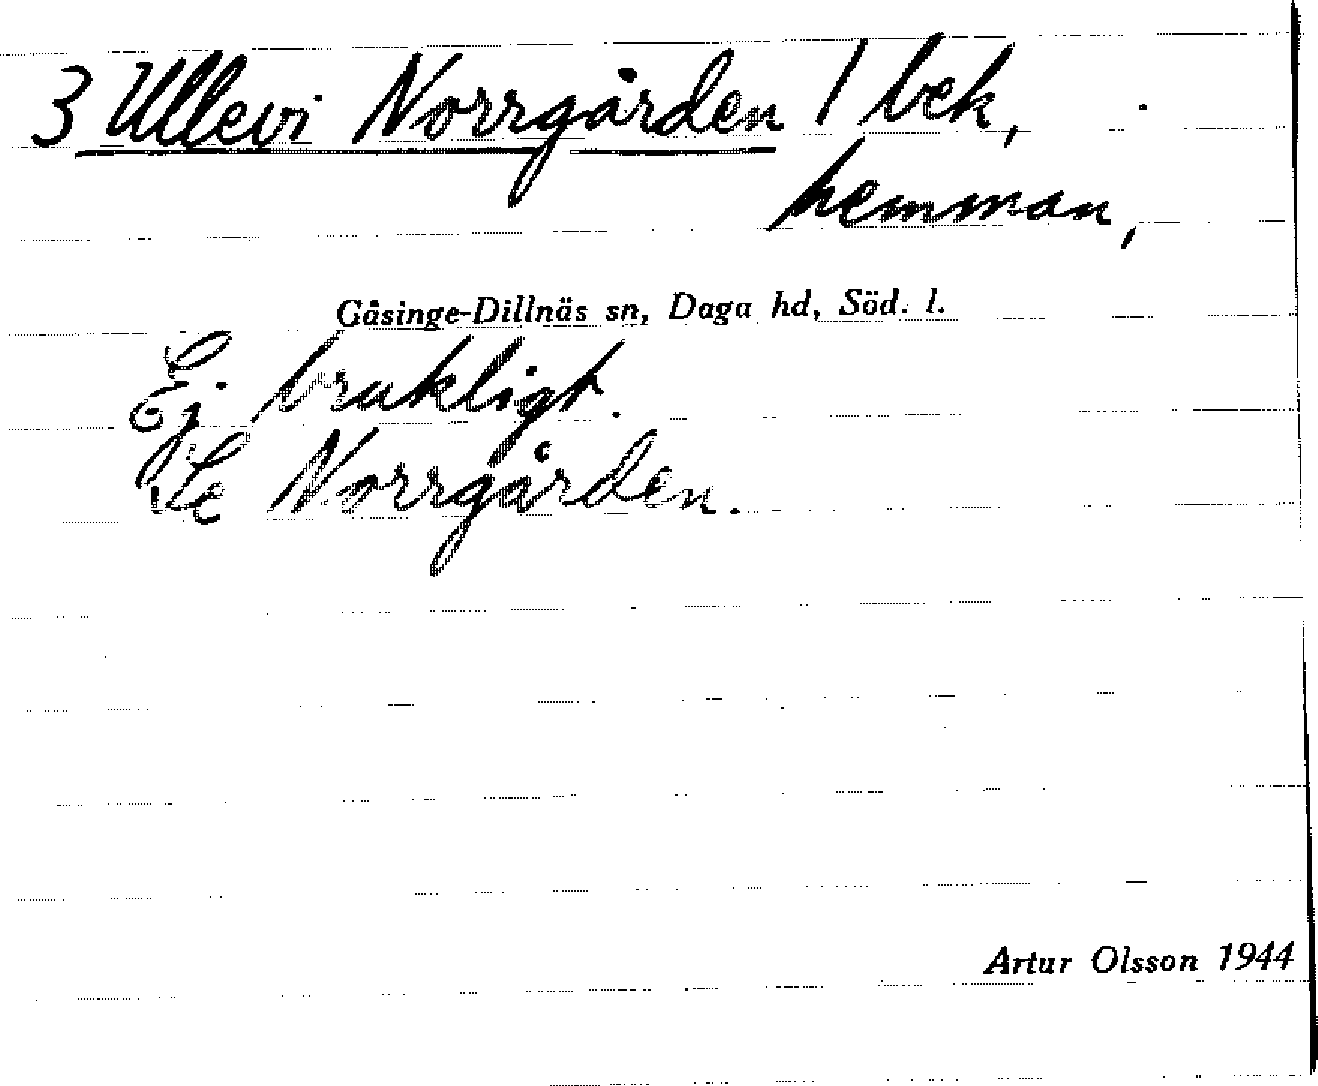 3 Ullevi Norrgården 1 bek,
hemman,
Gåsinge-Dillnäs sn, Daga hd, Söd. l.
Ej brukligt.
Se Norrgården.
Artur Olsson 1944